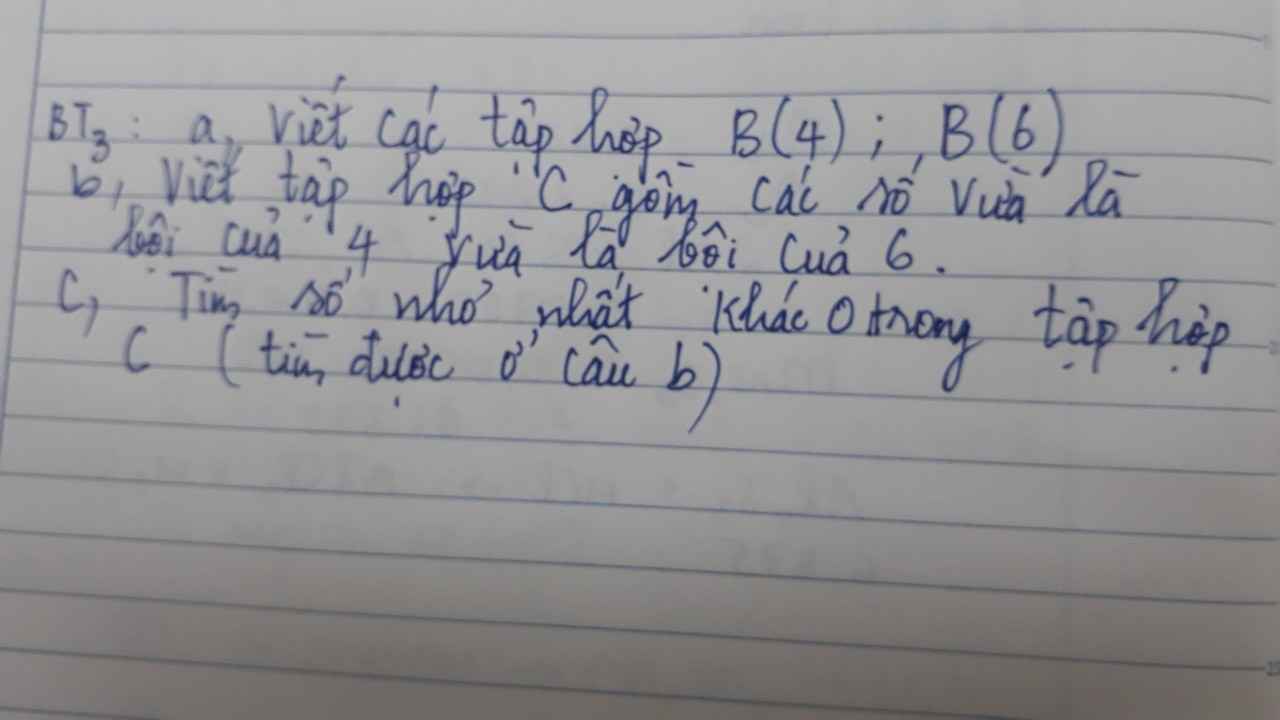 BT3: a, Viết các tập hợp B(4); B(6)
b, Viết tập hợp C gồm các số vừa là
bội của 4 vừa là bội của 6.
C, Tìm số nhỏ nhất khác 0 trong tập hợp
C (tìm được ở câu b)